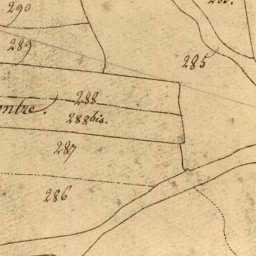 290
289
285
288
288 bis.
287
286